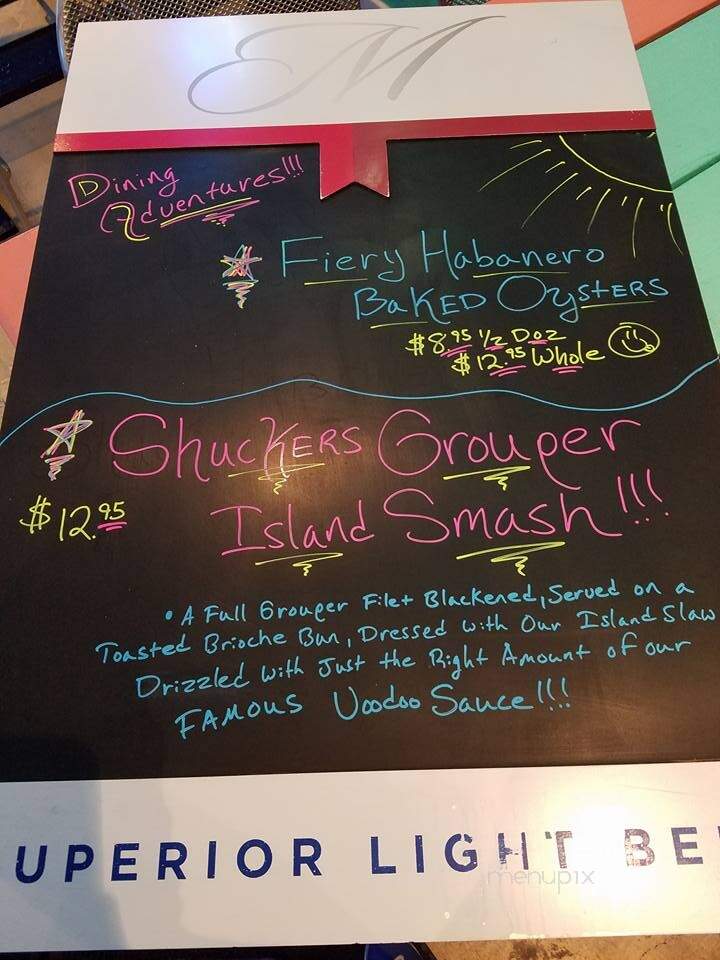 M
Dining
Adventures!!!
Fiery Habanero
Baked Oysters
$8.95 1/2 Doz
$12.95 Whole
Shuckers Grouper
$12.95
Island Smash!!!
• A Full Grouper Filet Blackened, Served on a
Toasted Brioche Bun, Dressed with Our Island Slaw
Drizzled with Just the Right Amount of our
Famous Voodoo Sauce!!!
UPERIOR LIGHT BE
menupix